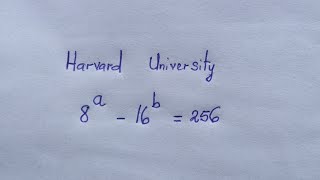 Harvard University
8^a - 16^b = 256